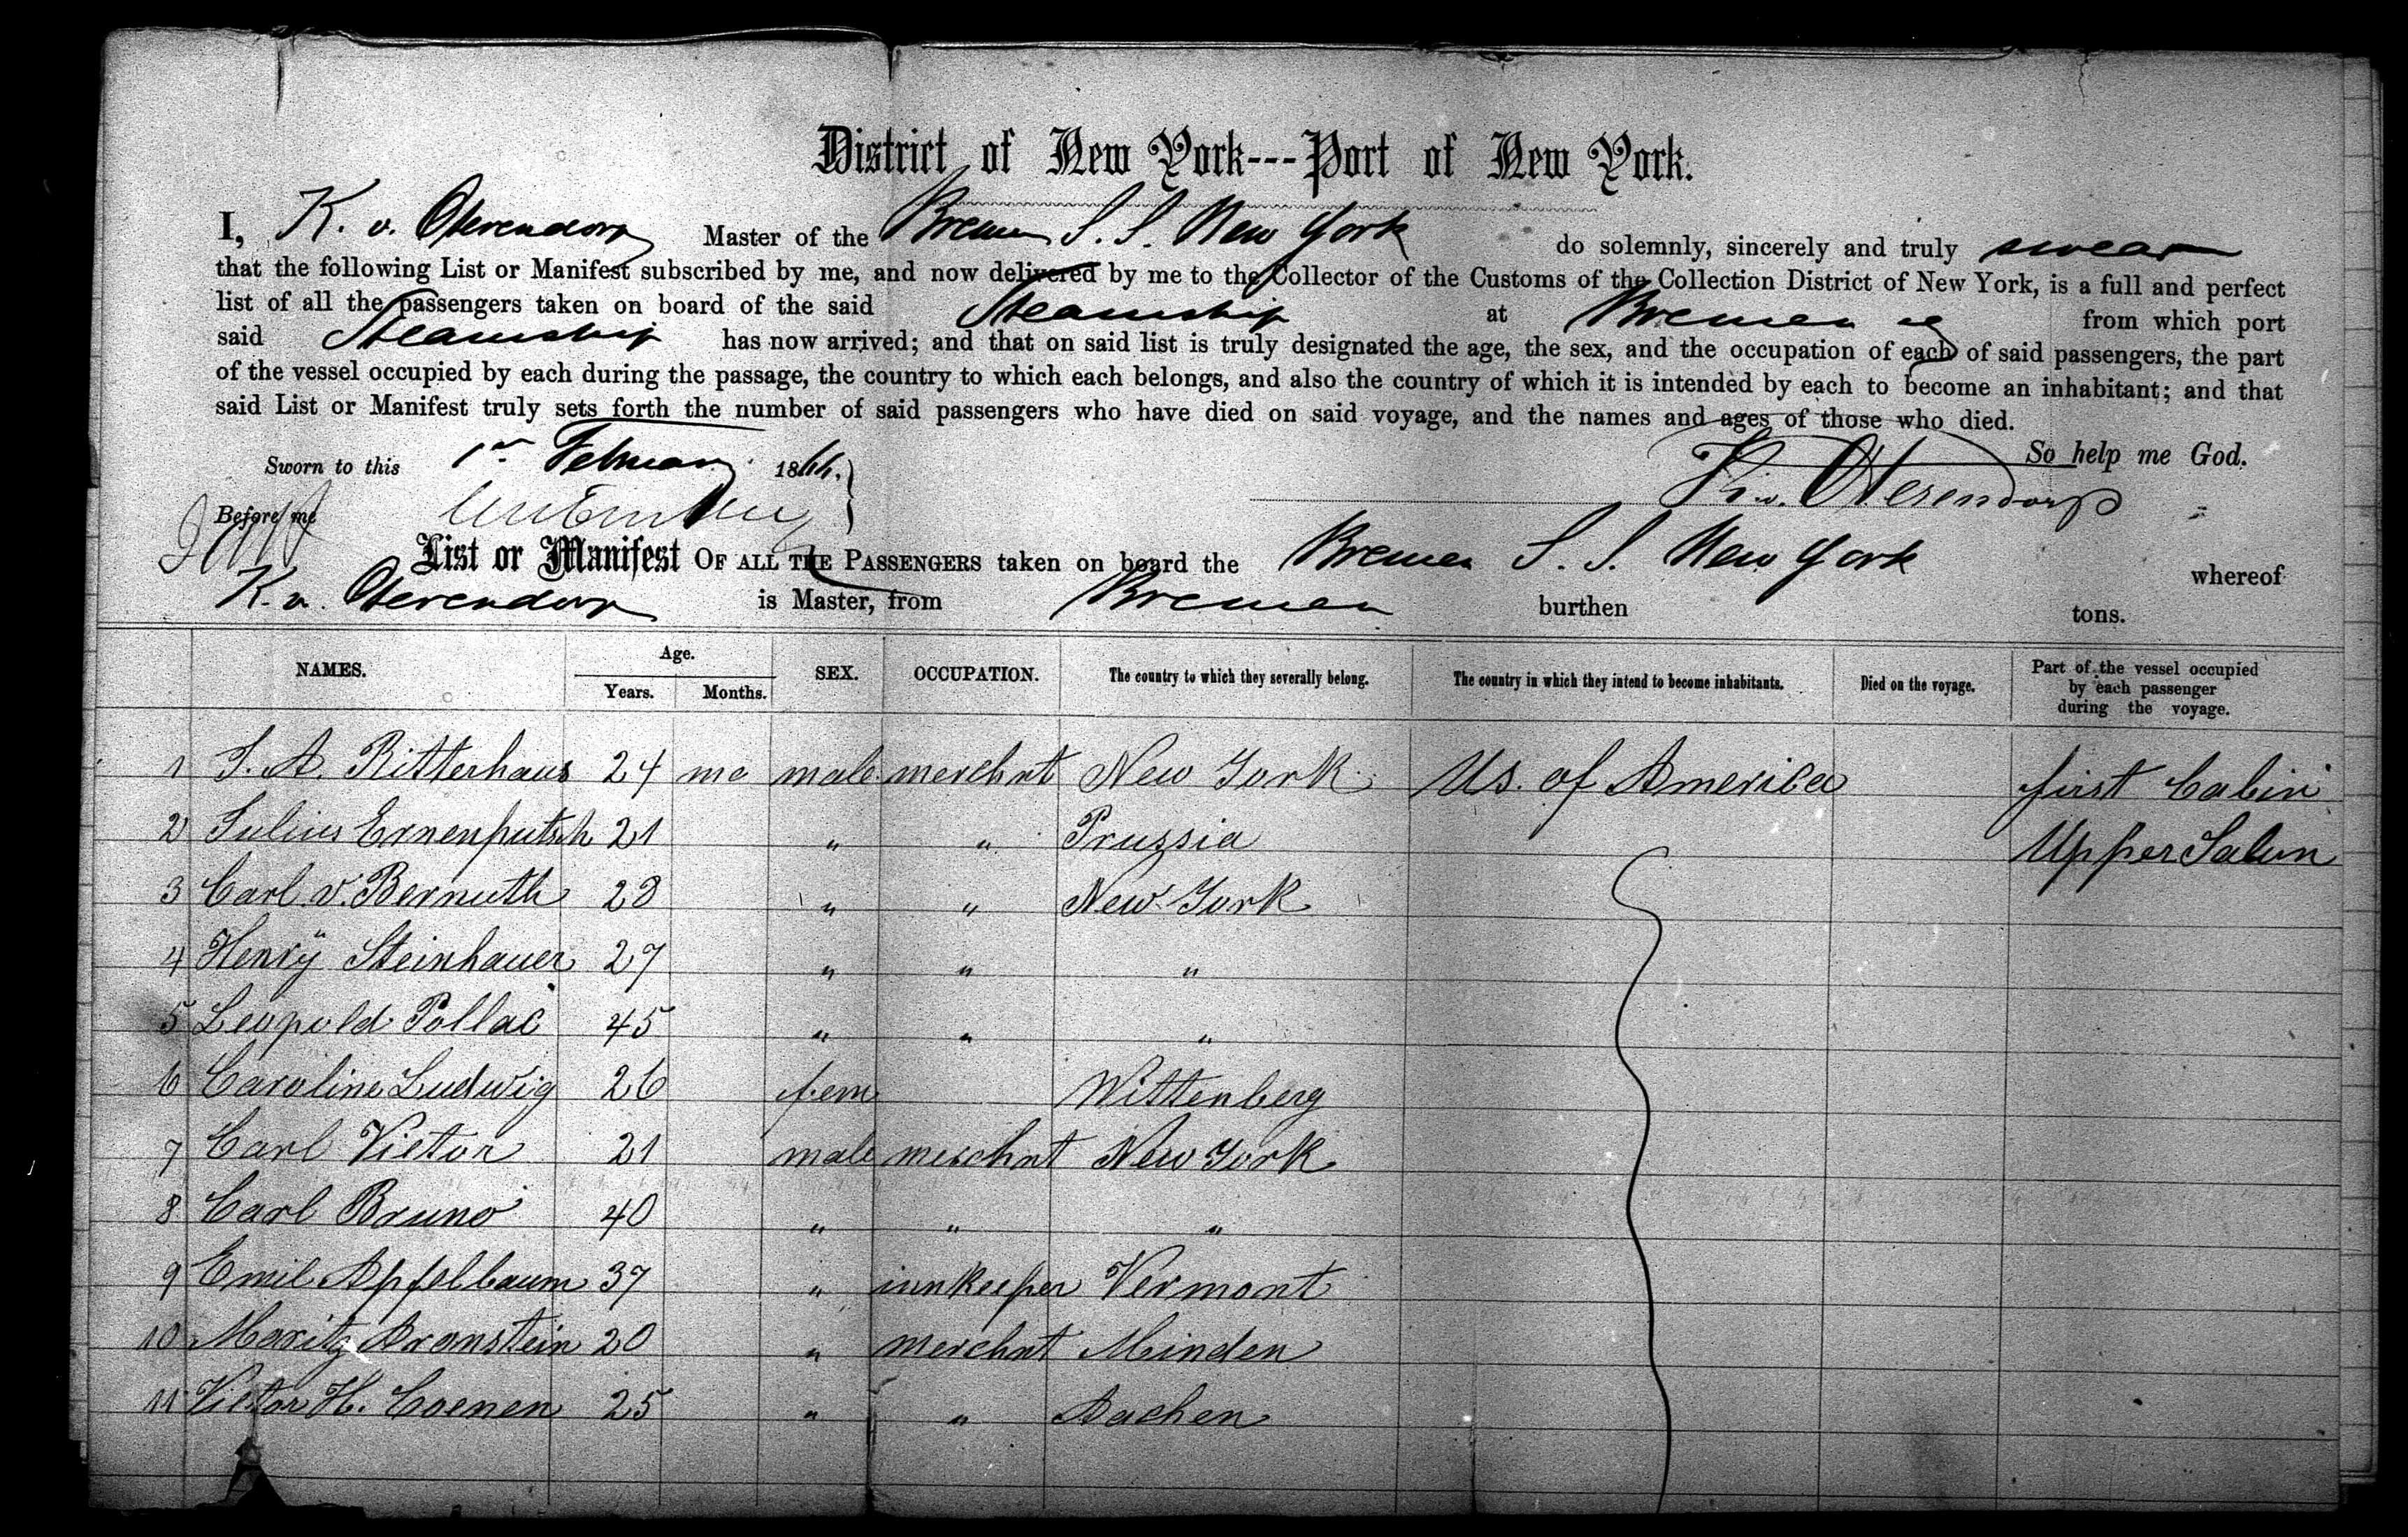 District of New York---Port of New York.
I, K. v. Oterendorp Master of the Bremen S. S. New York do solemnly, sincerely and truly swear
that the following List or Manifest subscribed by me, and now delivered by me to the Collector of the Customs of the Collection District of New York, is a full and perfect
list of all the passengers taken on board of the said Steamship at Bremen from which port
said Steamship has now arrived; and that on said list is truly designated the age, the sex, and the occupation of each of said passengers, the part
of the vessel occupied by each during the passage, the country to which each belongs, and also the country of which it is intended by each to become an inhabitant; and that
said List or Manifest truly sets forth the number of said passengers who have died on said voyage, and the names and ages of those who died.
So help me God.
Sworn to this 1st February 1866.
K. v. Oterendorp
Before me
List or Manifest OF ALL THE PASSENGERS taken on board the Bremen S. S. New York whereof
K. v. Oterendorp is Master, from Bremen burthen tons.
NAMES. Age. Years. Months. SEX. OCCUPATION. The country to which they severally belong. The country in which they intend to become inhabitants. Died on the voyage. Part of the vessel occupied by each passenger during the voyage.
1 J. A. Ritterhaus 24 mo male merchnt New York Us. of America first Cabin
2 Julius Ernenputsch 21 " " Prussia Upper Salun
3 Carl v. Bernuth 28 " " New York
4 Henrÿ Steinhauer 27 " " "
5 Leopold Pollac 45 " " "
6 Caroline Ludwig 26 fem Wittenberg
7 Carl Vietor 21 male merchnt New York
8 Carl Bruno 40 " " "
9 Emil Apfelbaum 37 " innkeeper Vermont
10 Moritz Aronstein 20 " merchnt Minden
11 Victor H. Coenen 25 " " Aachen